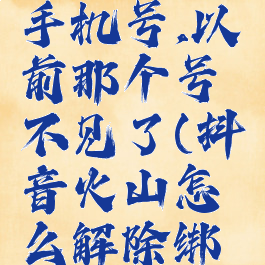 手机号,以
前那个号
不见了(抖
音火山怎
么解除绑